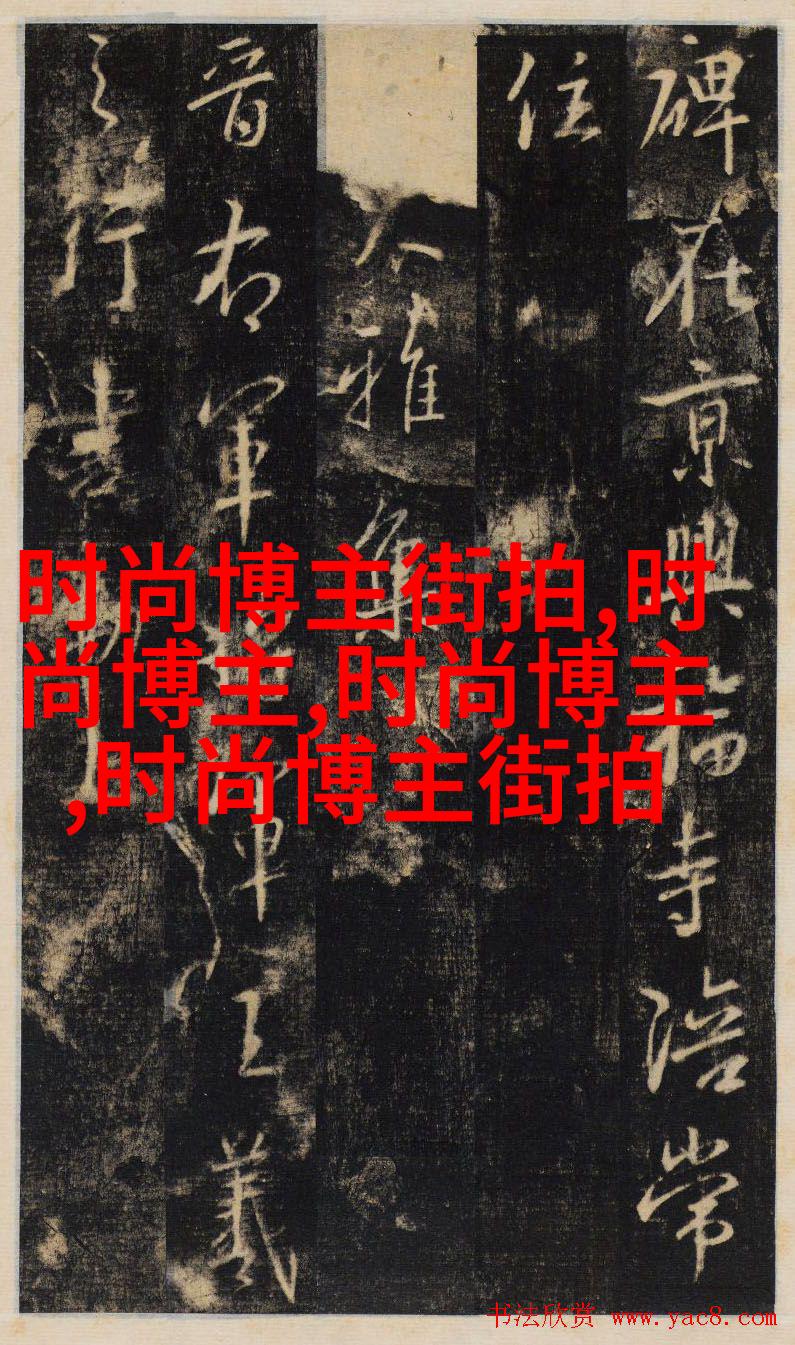 碑在京興福寺陪常
住
大雅集
晉右軍軍王羲
之行書
时尚博主街拍,时
尚博主,时尚博主
,时尚博主街拍
书法欣赏 www.yac8.com